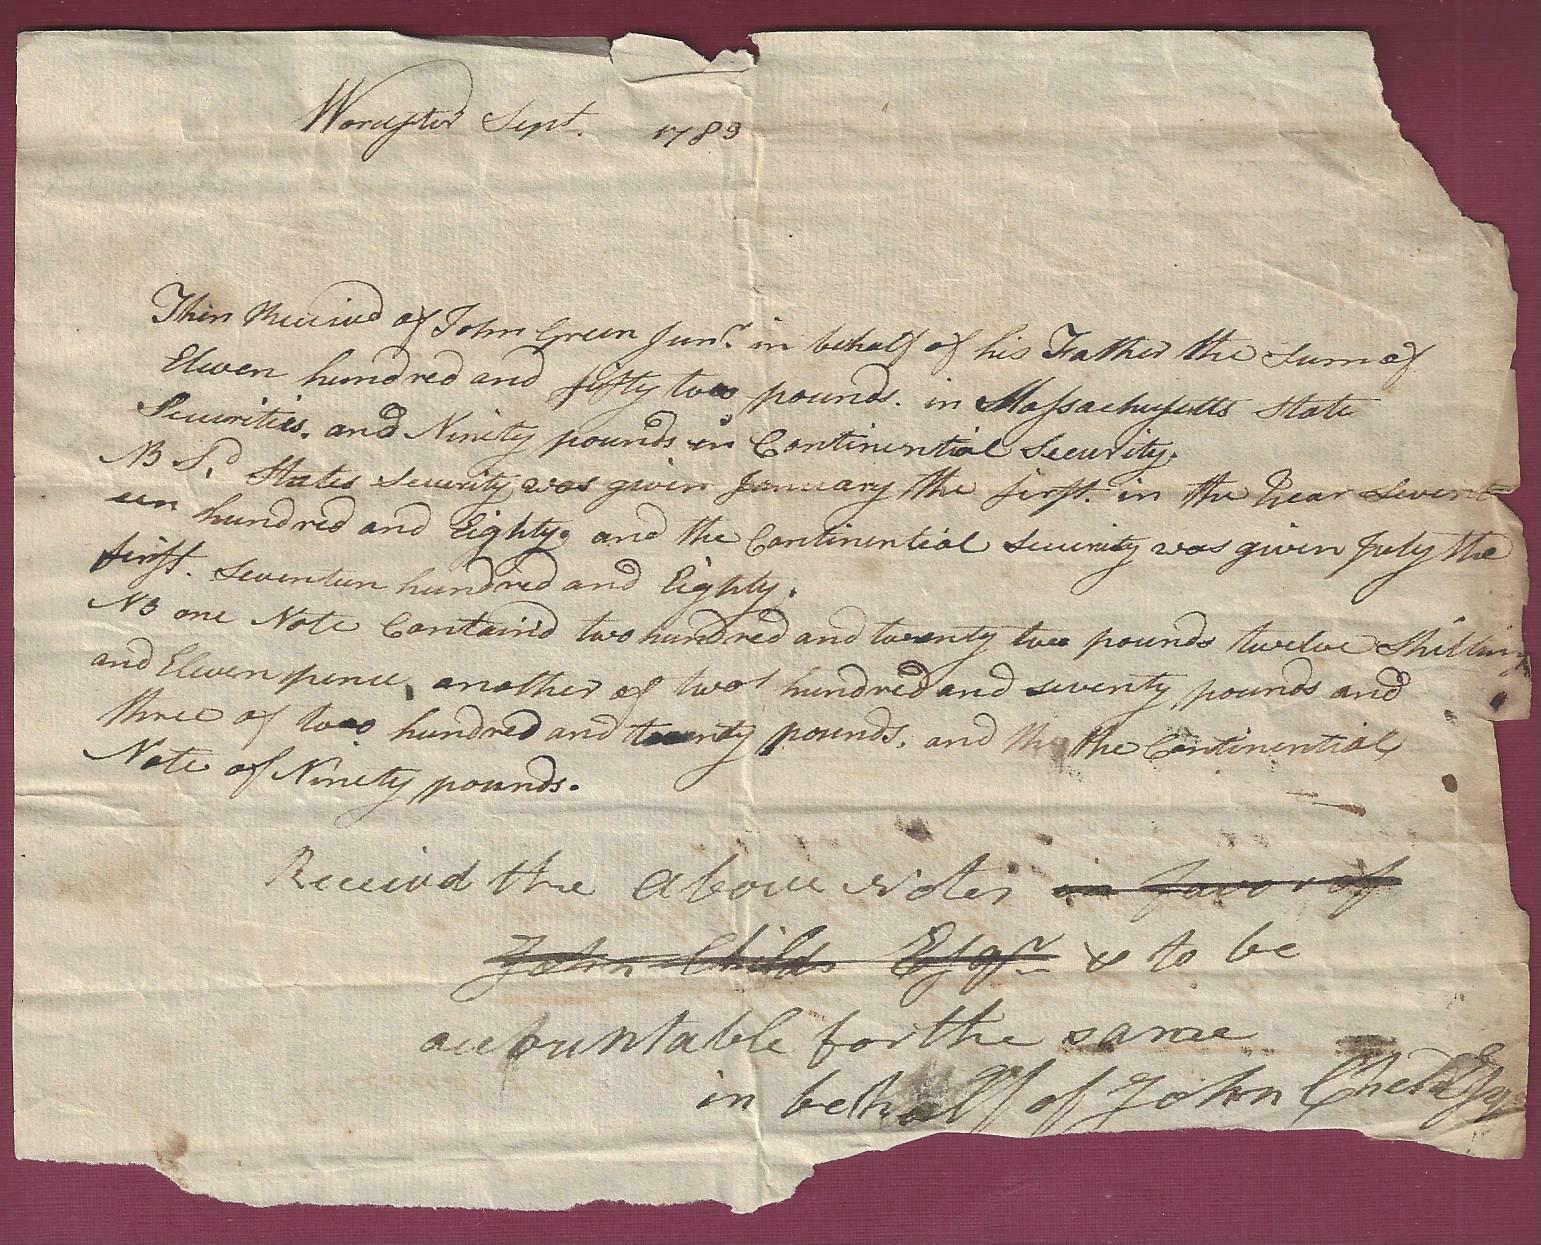 Worcester Sept. 1783
Then Received of John Green Junr. in behalf of his Father the Sum of
Eleven hundred and fifty two pounds. in Massachusetts State
Securities. and Ninety pounds in Continential Security.
NB Sd. States Security was given January the first. in the Year Sevent
een hundred and Eighty. and the Continential Security was given July the
first. Seventeen hundred and Eighty.
NB one Note Contain'd two hundred and twenty two pounds twelve Shillings
and Eleven pence, another of two hundred and seventy pounds and
three of two hundred and twenty pounds. and the the Continential
Note of Ninety pounds.
Received the above Notes in favor of
John Childs Esqr & to be
accountable for the same
in behalf of John Child Esqr